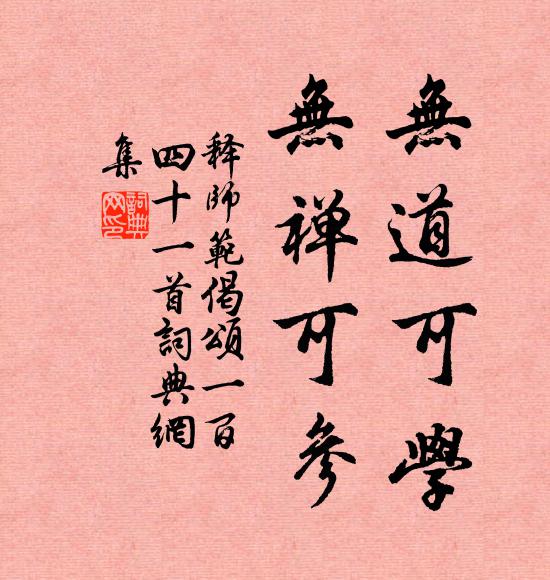 無道可學
無禅可參
释師範偈頌一百
四十一首詞典網
集
詞典
网印